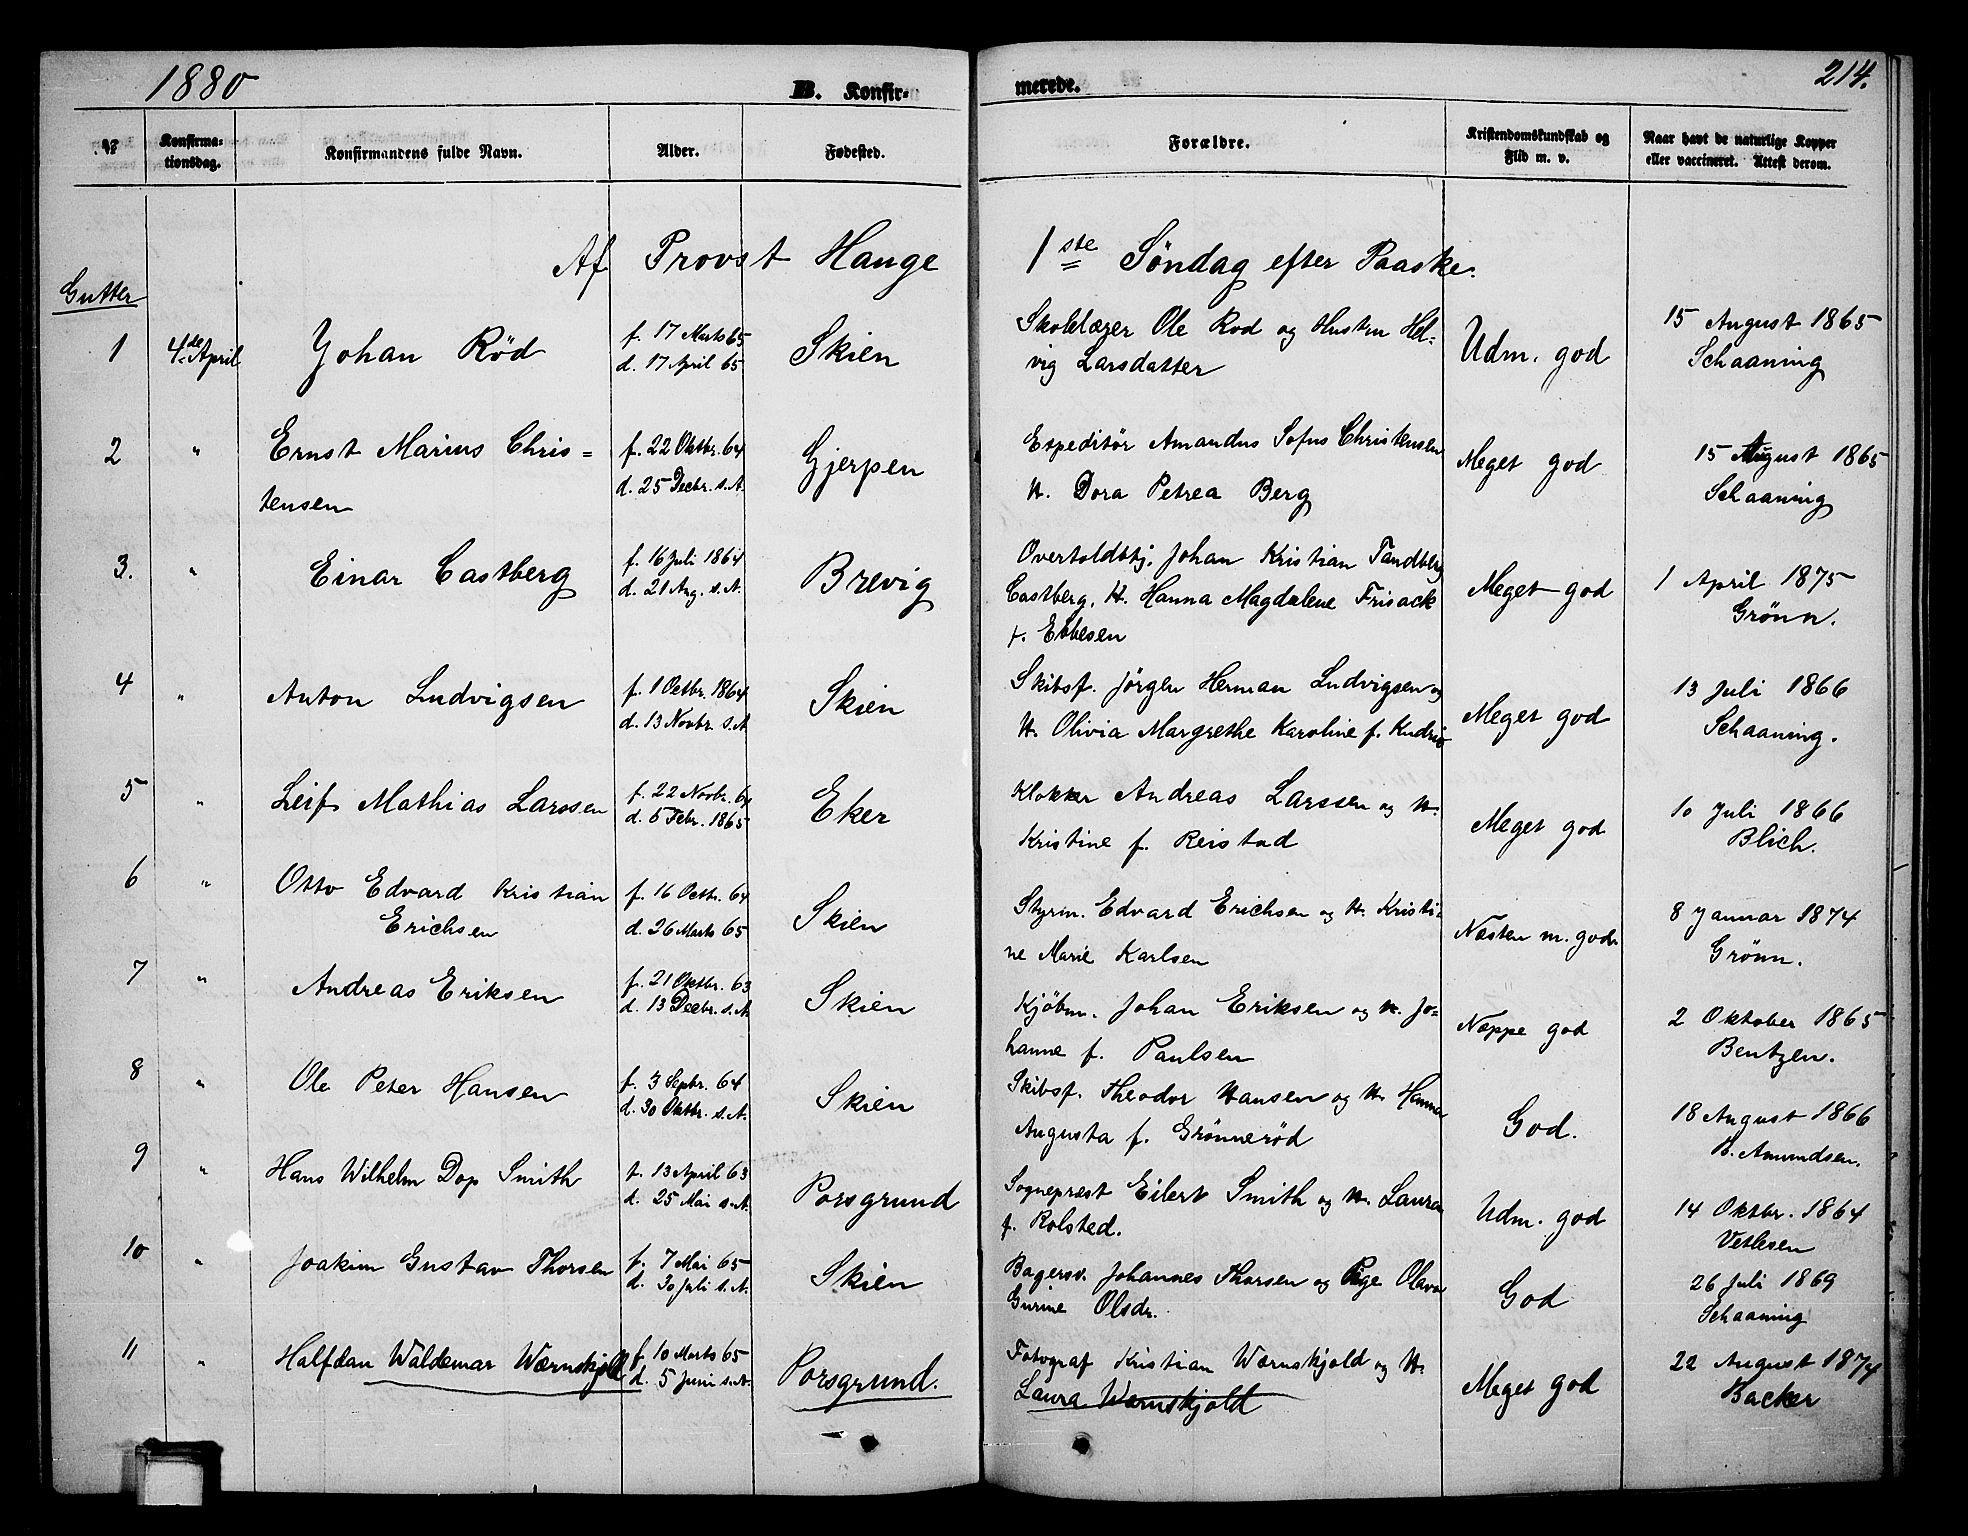 1880
B. Konfir-
merede.
214.
№
Konfirma-
tionsdag.
Konfirmandens fulde Navn.
Alder.
Fødested.
Forældre.
Kristendomskundskab og
Flid m. v.
Naar havt de naturlige Kopper
eller vaccineret. Attest derom.
Af Provst Hauge
1ste Søndag efter Paaske.
Gutter
1
4de April
Johan Röd
f. 17 Marts 65
d. 17 April 65
Skien
Skolelærer Ole Rod og Hustru Hel-
vig Larsdatter
Udm. god
15 August 1865
Schaaning
2
"
Ernst Marius Chris=
tensen
f. 22 Oktbr. 64
d. 25 Decbr. s.A.
Gjerpen
Expeditör Amandus Sofus Christensen
H. Dora Petrea Berg
Meget god
15 August 1865
Schaaning
3.
"
Einar Castberg
f. 16 Juli 1864
d. 21 Aug. s.A.
Brevig
Overtoldbtj. Johan Kristian Tandberg
Castberg, H. Hanna Magdalene Frisack
f. Ebbesen
Meget god
1 April 1875
Grönn.
4
"
Anton Ludvigsen
f. 1 Octbr. 1864
d. 13 Novbr. s.A
Skien
Skibsf. Jörgen Herman Ludvigsen og
H. Olivia Margrethe Karoline f.
Meget god
13 Juli 1866
Schaaning.
5
"
Leif Mathias Larssen
f. 22 Novbr. 64
d. 5 Febr. 1865
Eker
Klokker Andreas Larssen og H.
Kristine f. Reistad
Meget god
10 Juli 1866
Blich.
6
"
Otto Edvard Kristian
Erichsen
f. 16 Octbr. 64
d. 26 Marts 65
Skien
Styrm. Edvard Erichsen og H. Kristi-
ne Marie Karlsen
Næsten m. god
8 Januar 1874
Grönn.
7
"
Andreas Eriksen
f. 21 Oktbr. 63
d. 13 Decbr. s.A
Skien
Kjöbm. Johan Eriksen og H. Jo-
hanne f. Paulsen
Næppe god
2 Oktober 1865
Bentzen.
8
"
Ole Peter Hansen
f. 3 Septbr. 64
d. 30 Oktbr. s.A.
Skien
Skibsf. Theodor Hansen og H. Hanna
Augusta f. Grönneröd
God.
18 August 1866
B. Amundsen.
9
"
Hans Wilhelm Dop Smith
f. 13 April 63
d. 25 Mai s.A.
Porsgrund
Sogneprest Eilert Smith og H. Laura
f. Rolsted.
Udm. god
14 Oktbr. 1864
Vetlesen
10
"
Joakim Gustav Thorsen
f. 7 Mai 65
d. 30 Juli s.A.
Skien
Bagersv. Johannes Thorsen og Pige Olava
Gurine Olsdr.
God
26 Juli 1869
Schaaning
11
"
Halfdan Waldemar Wærnskjold
f. 10 Marts 65
d. 5 Juni s.A.
Porsgrund.
Fotograf Kristian Wærnskjold og H.
Laura Wærnskjold
Meget god
22 August 1874
Backer